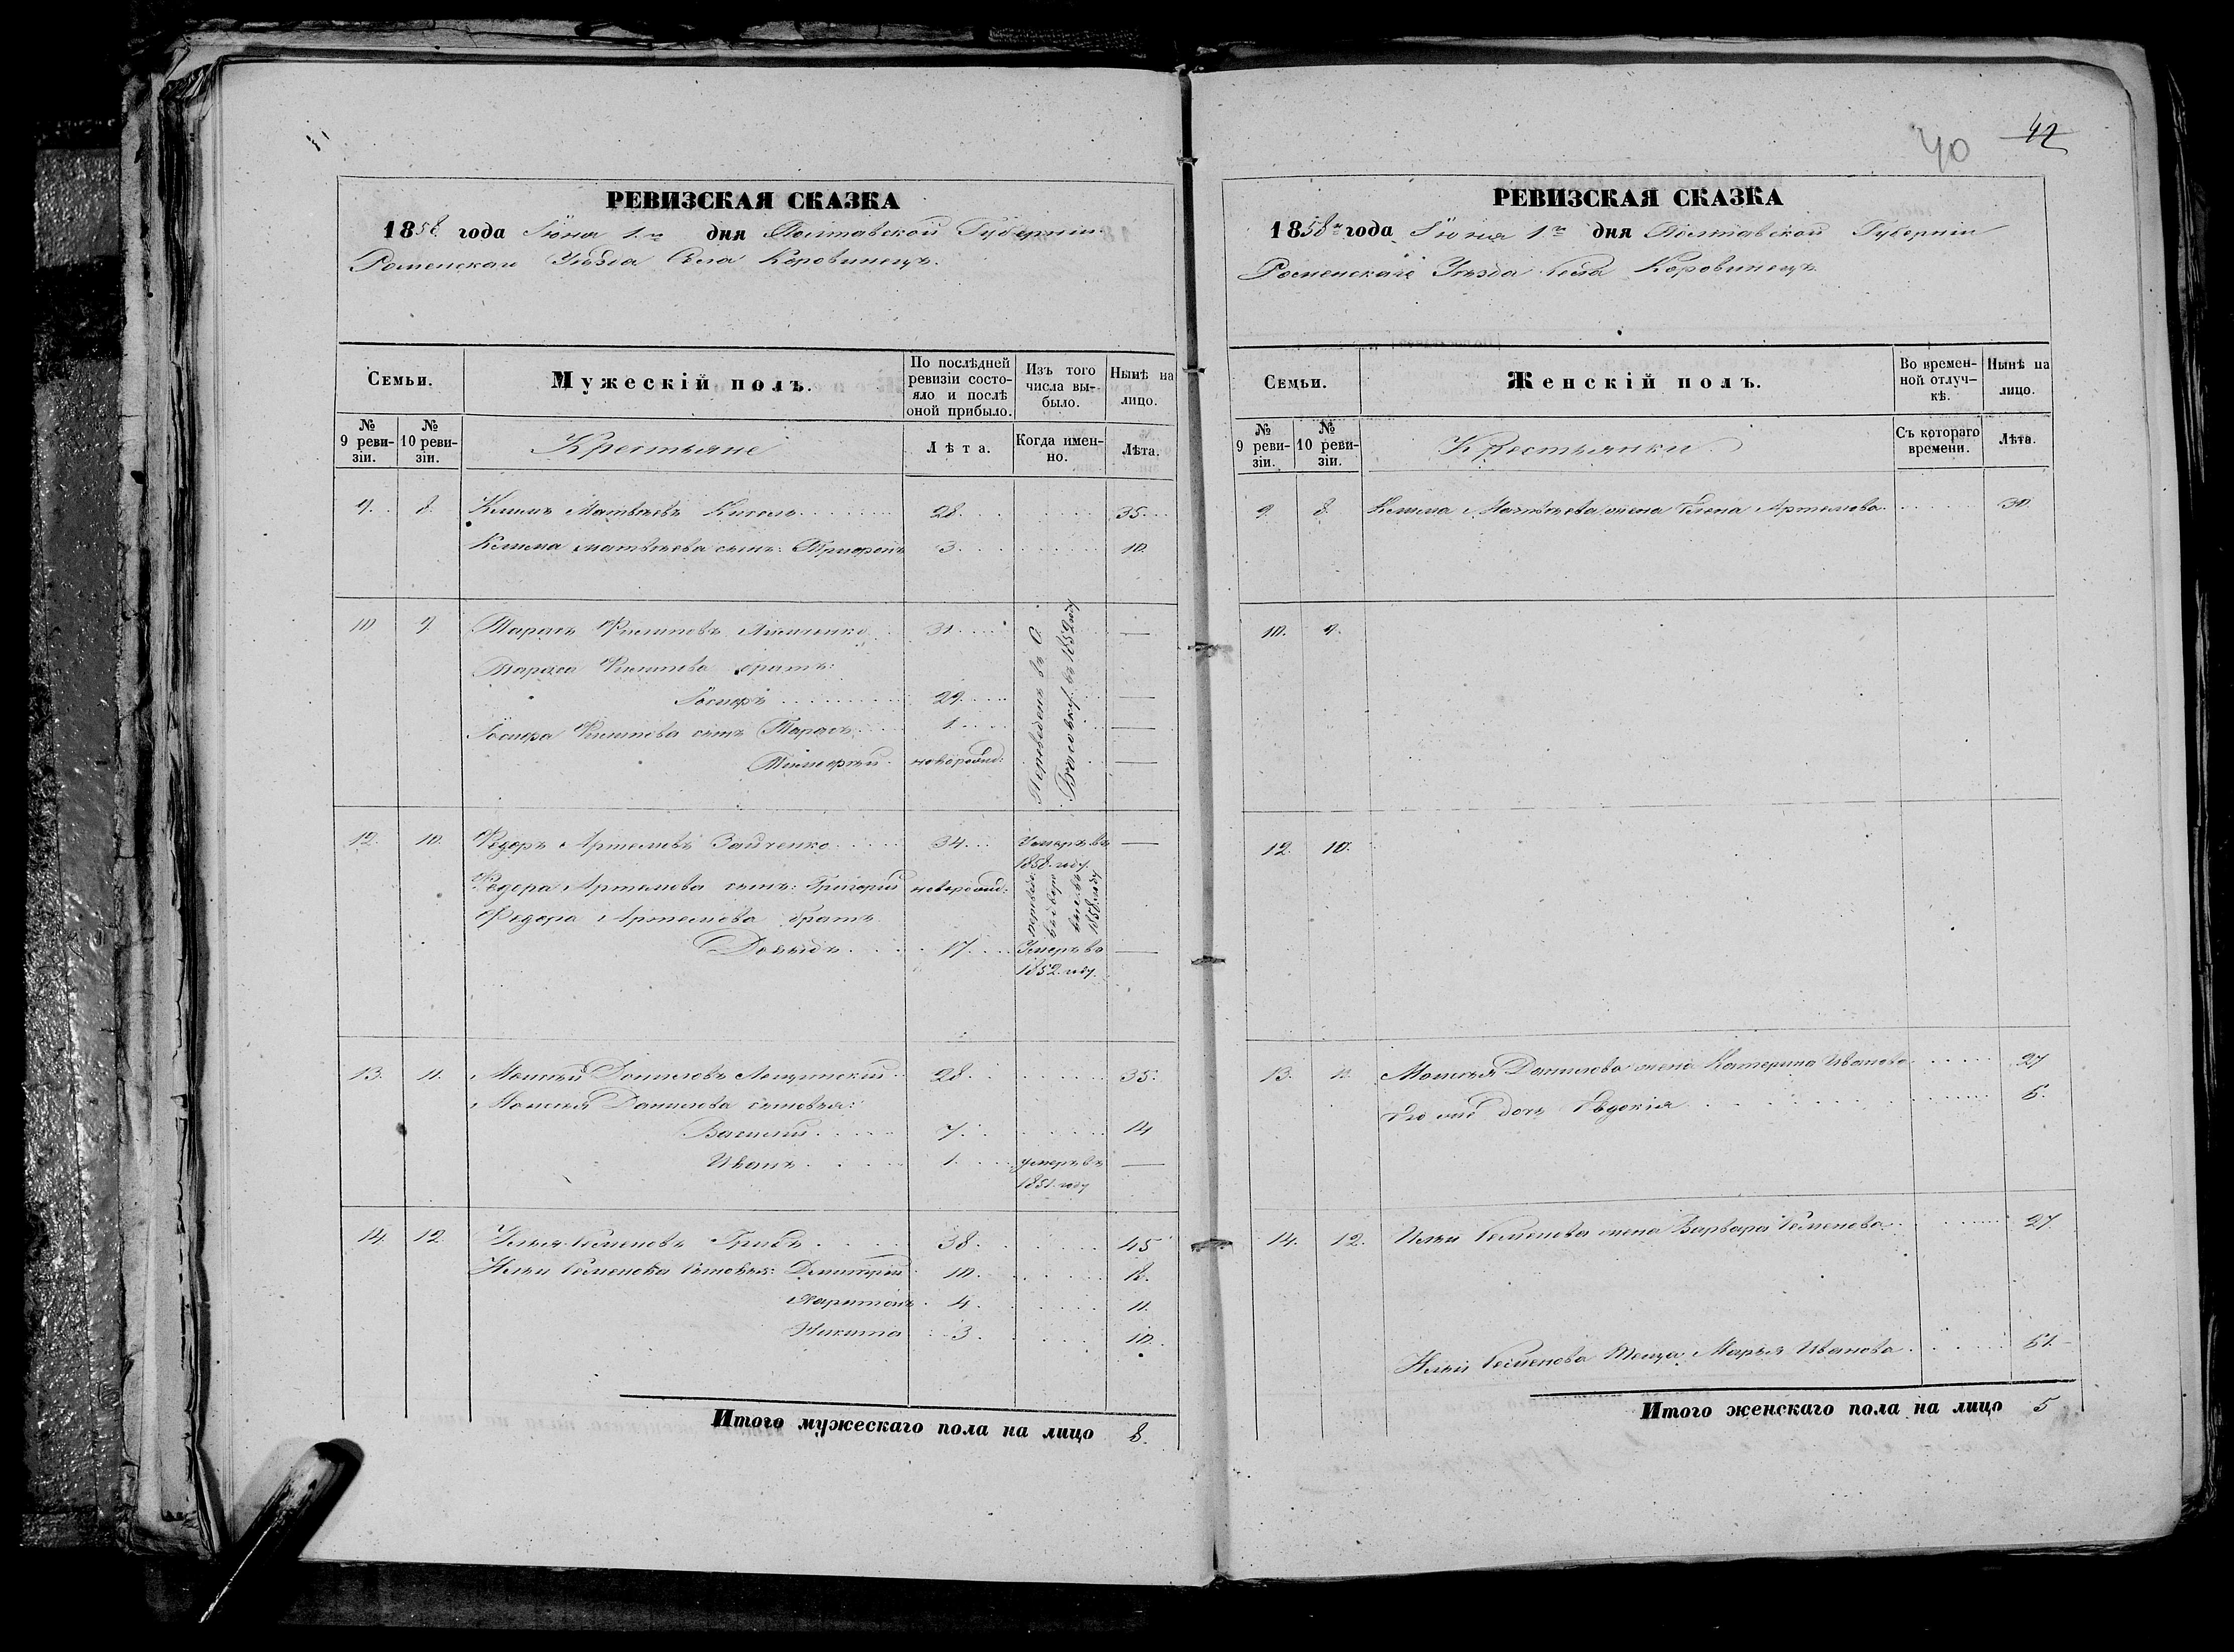 РЕВИЗСКАЯ СКАЗКА
1858 года Іюня 1го дня Полтавской Губерніи
Роменскаго Уѣзда Села Коровинецъ.
Семьи.
Мужескій полъ.
По послѣдней ревизіи состояло и послѣ оной прибыло.
Изъ того числа выбыло.
Нынѣ на лицо.
№ 9 ревизіи.
№ 10 ревизіи.
Крестьяне
Лѣта.
Когда именно.
Лѣта.
9. 8. Климъ Матвѣевъ 28. 35.
Клима Матвѣева сынъ: 3. 10.
10 9. Тарасъ Филиповъ 31.
Тараса Филипова братъ:
29.
Филипова сынъ Тарасъ 1.
Тимофѣй новорожд:
Переведенъ въ С.
въ 1852 году
12. 10. Федоръ Артемовъ Зайченко 34. Умеръ въ
1858. году.
Федора Артемова сынъ: Григорій новорожд:
1858. году
Федора Артемова братъ
Давыдъ 17. Умеръ въ
1852. году.
13. 11. Моисѣй Даниловъ Лещинскій 28. 35.
Моисѣя Данилова сыновья:
Василій 7. 14
Иванъ 1. умеръ въ
1851. году
14. 12. Илья Семеновъ 38. 45
Ильи Семенова сыновья: Дмитрій 10. 18.
Харитонъ 4. 11.
Никита 3. 10.
Итого мужескаго пола на лицо 8.
40 42
РЕВИЗСКАЯ СКАЗКА
1858го года Іюня 1го дня Полтавской Губерніи
Роменскаго Уѣзда Села Коровинецъ.
Семьи.
Женскій полъ.
Во временной отлучкѣ.
Нынѣ на лицо.
№ 9 ревизіи.
№ 10 ревизіи.
Крестьянки
Съ котораго времени.
Лѣта.
9. 8. Клима Матвѣева жена Елена Артемова 30.
10. 9.
12. 10.
13. 11. Моисѣя Данилова жена Катерина Иванова 27
Его дочь Евдокія 6.
14. 12. Ильи Семенова жена Варвара Семенова 27.
Ильи Семенова теща Марья Иванова 61.
Итого женскаго пола на лицо 5